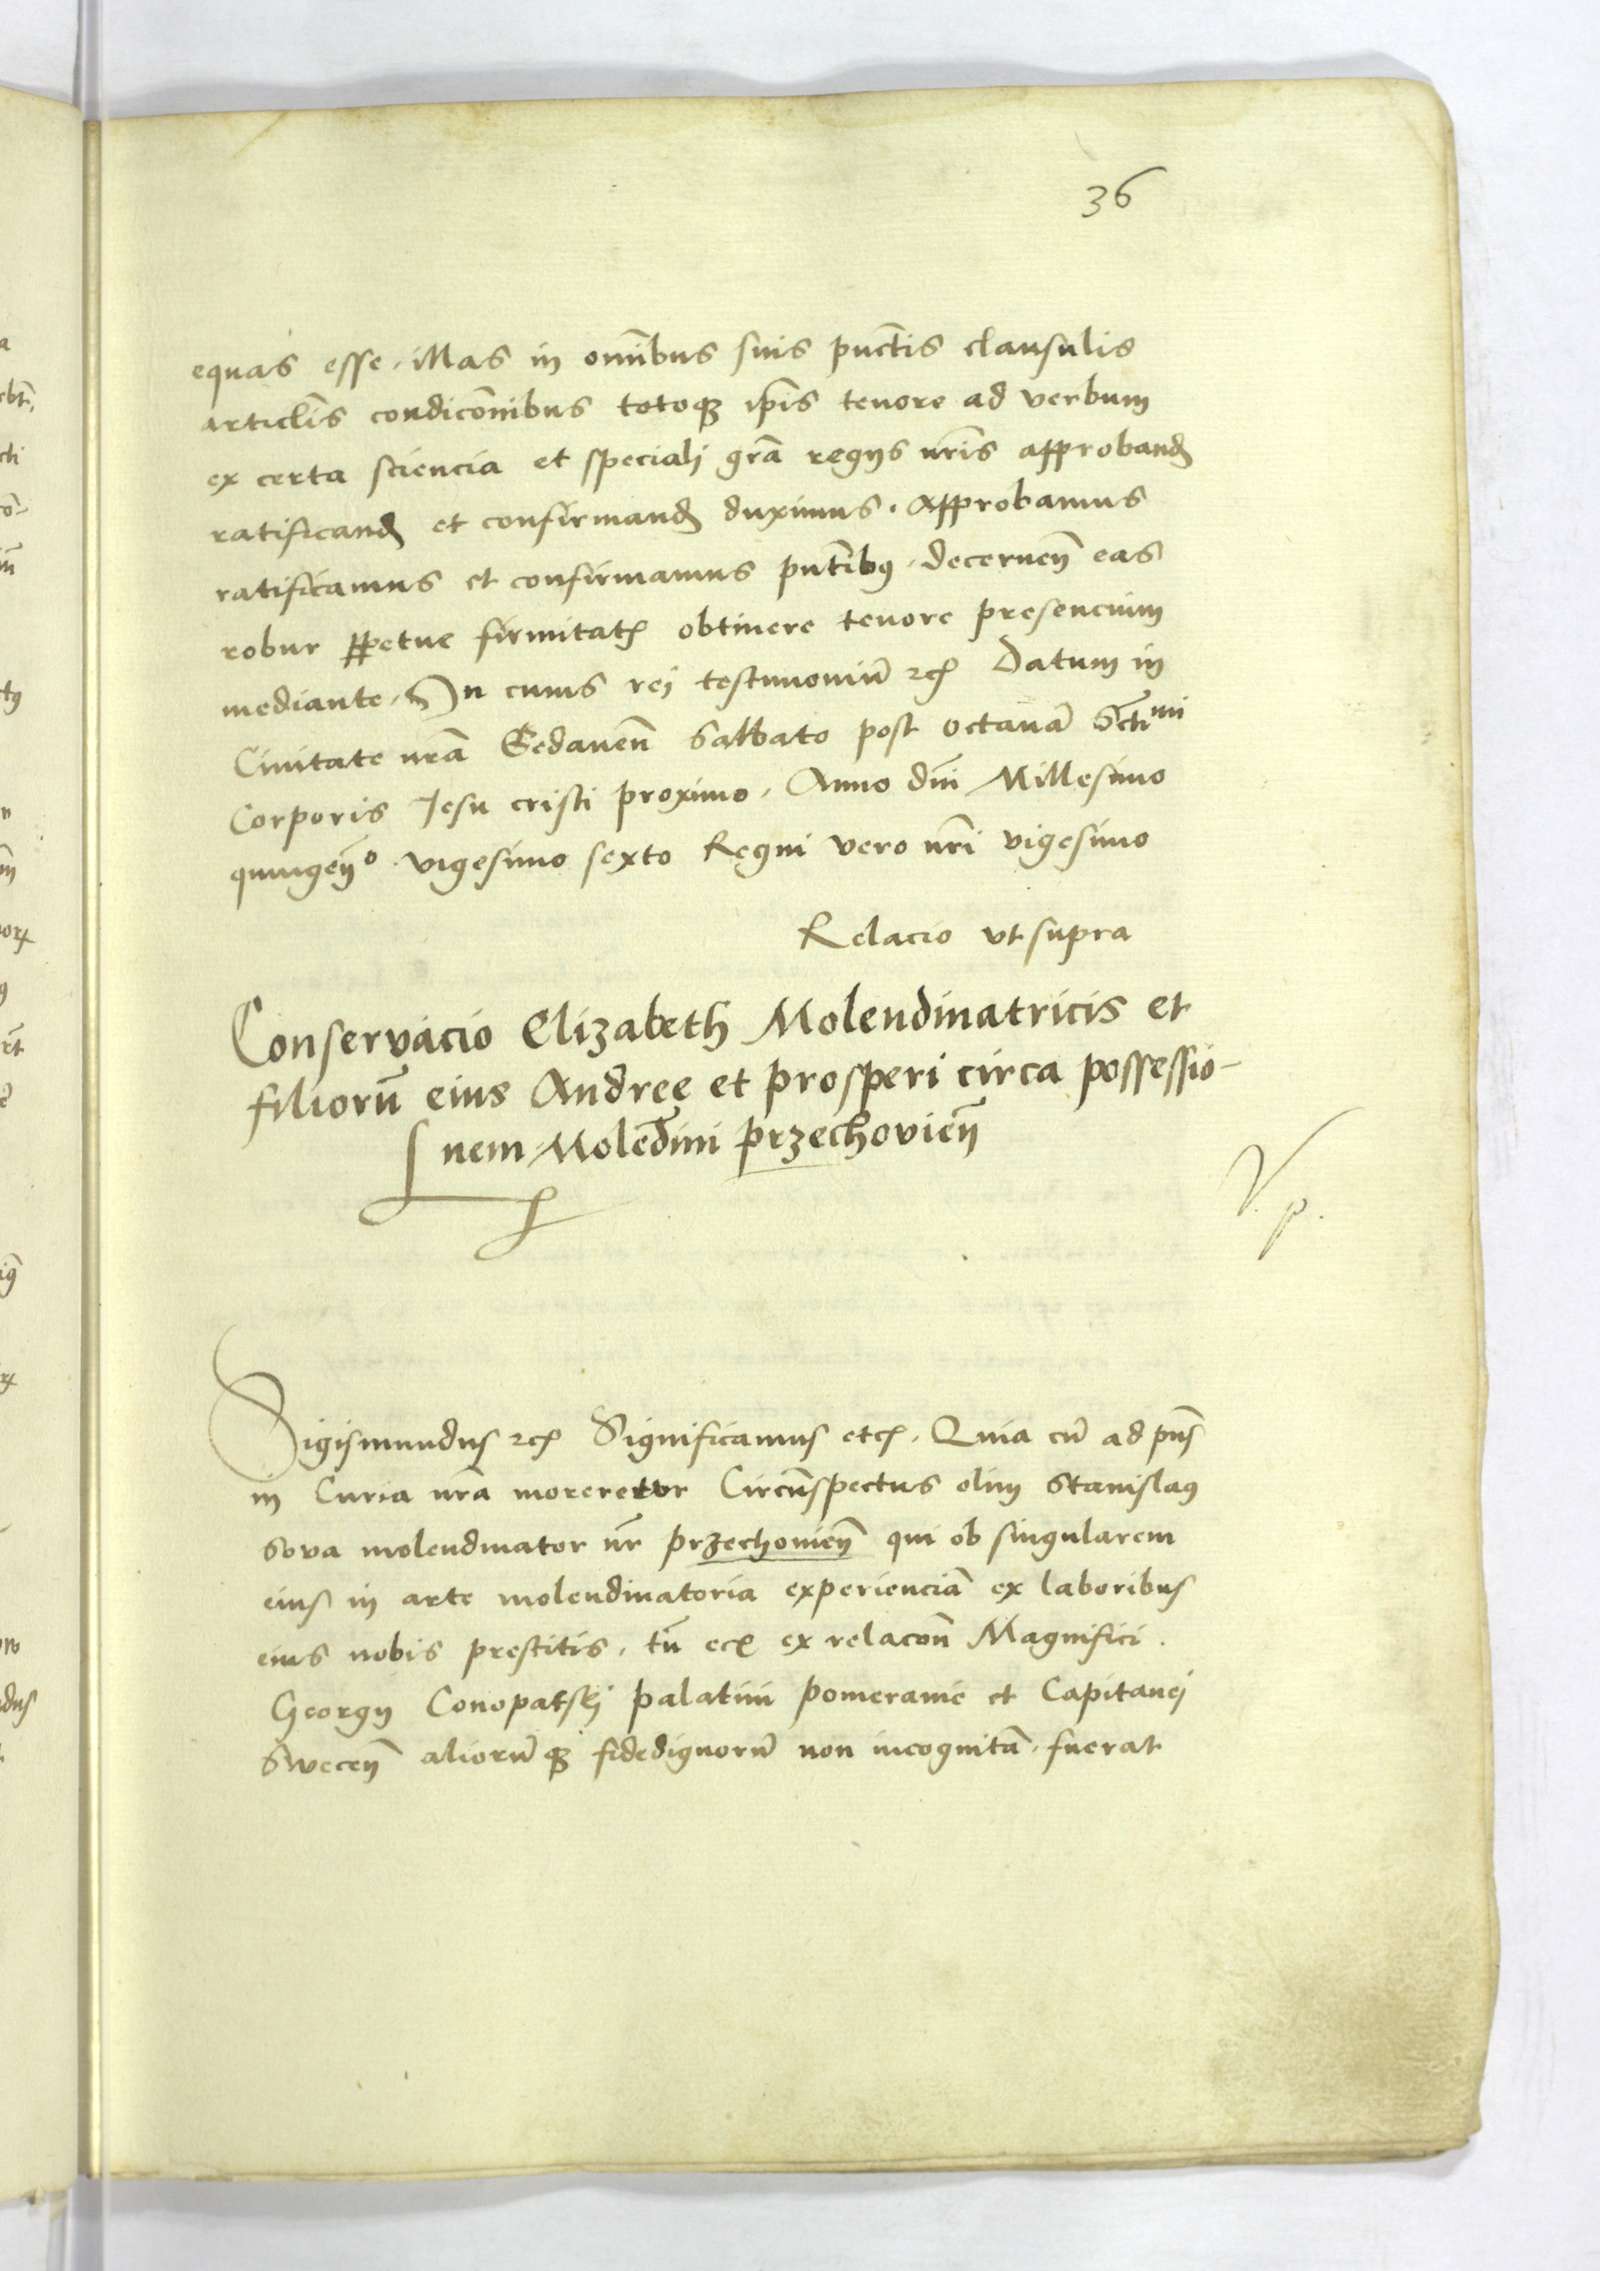 36
equas esse. illas in om̄ibus suis puct̄is clausulis
articl̄is condicōnibus totoqȝ ip̄is tenore ad verbum
ex certa sciencia et speciali gr̄a regijs nr̄is approband̄
ratificand̄ et confirmand̄ duximus. Approbamus
ratificamus et confirmamus pn̄tibꝰ. decernen̄ eas
robur ꝑpetue firmitatꝭ obtinere tenore presencium
mediante. In cuius rei testimoniū ꝛcꝭ Datum in
Ciuitate nr̄a Gedanen̄ Sabbato post octauā Sc̄tiᵐⁱ
Corporis Jesu cristi proximo. Anno dn̄i Millesimo
quingen̄ᵒ vigesimo sexto Regni vero nr̄i vigesimo
Relacio vt supra
Conservacio Elizabeth Molendinatricis et
filiorū eius Andree et prosperi circa possessio-
nem Molēdini przechovien̄
V. p.
Sigismundus ꝛcꝭ Significamus etcꝭ. Quia cū ad pn̄s
in Curia nr̄a moreretur Circūspectus olim Stanislaꝰ
Sova molendinator nr̄ przechouien̄ qui ob singularem
eius in arte molendinatoria experienciā ex laboribus
eius nobis prestitis. tū ecꝭ ex relacōn̄ Magnifici.
Georgij Conopatskj palatini pomeranie et Capitanej
Swecen̄ aliorūqȝ fidedignorū non incognitā. fuerat